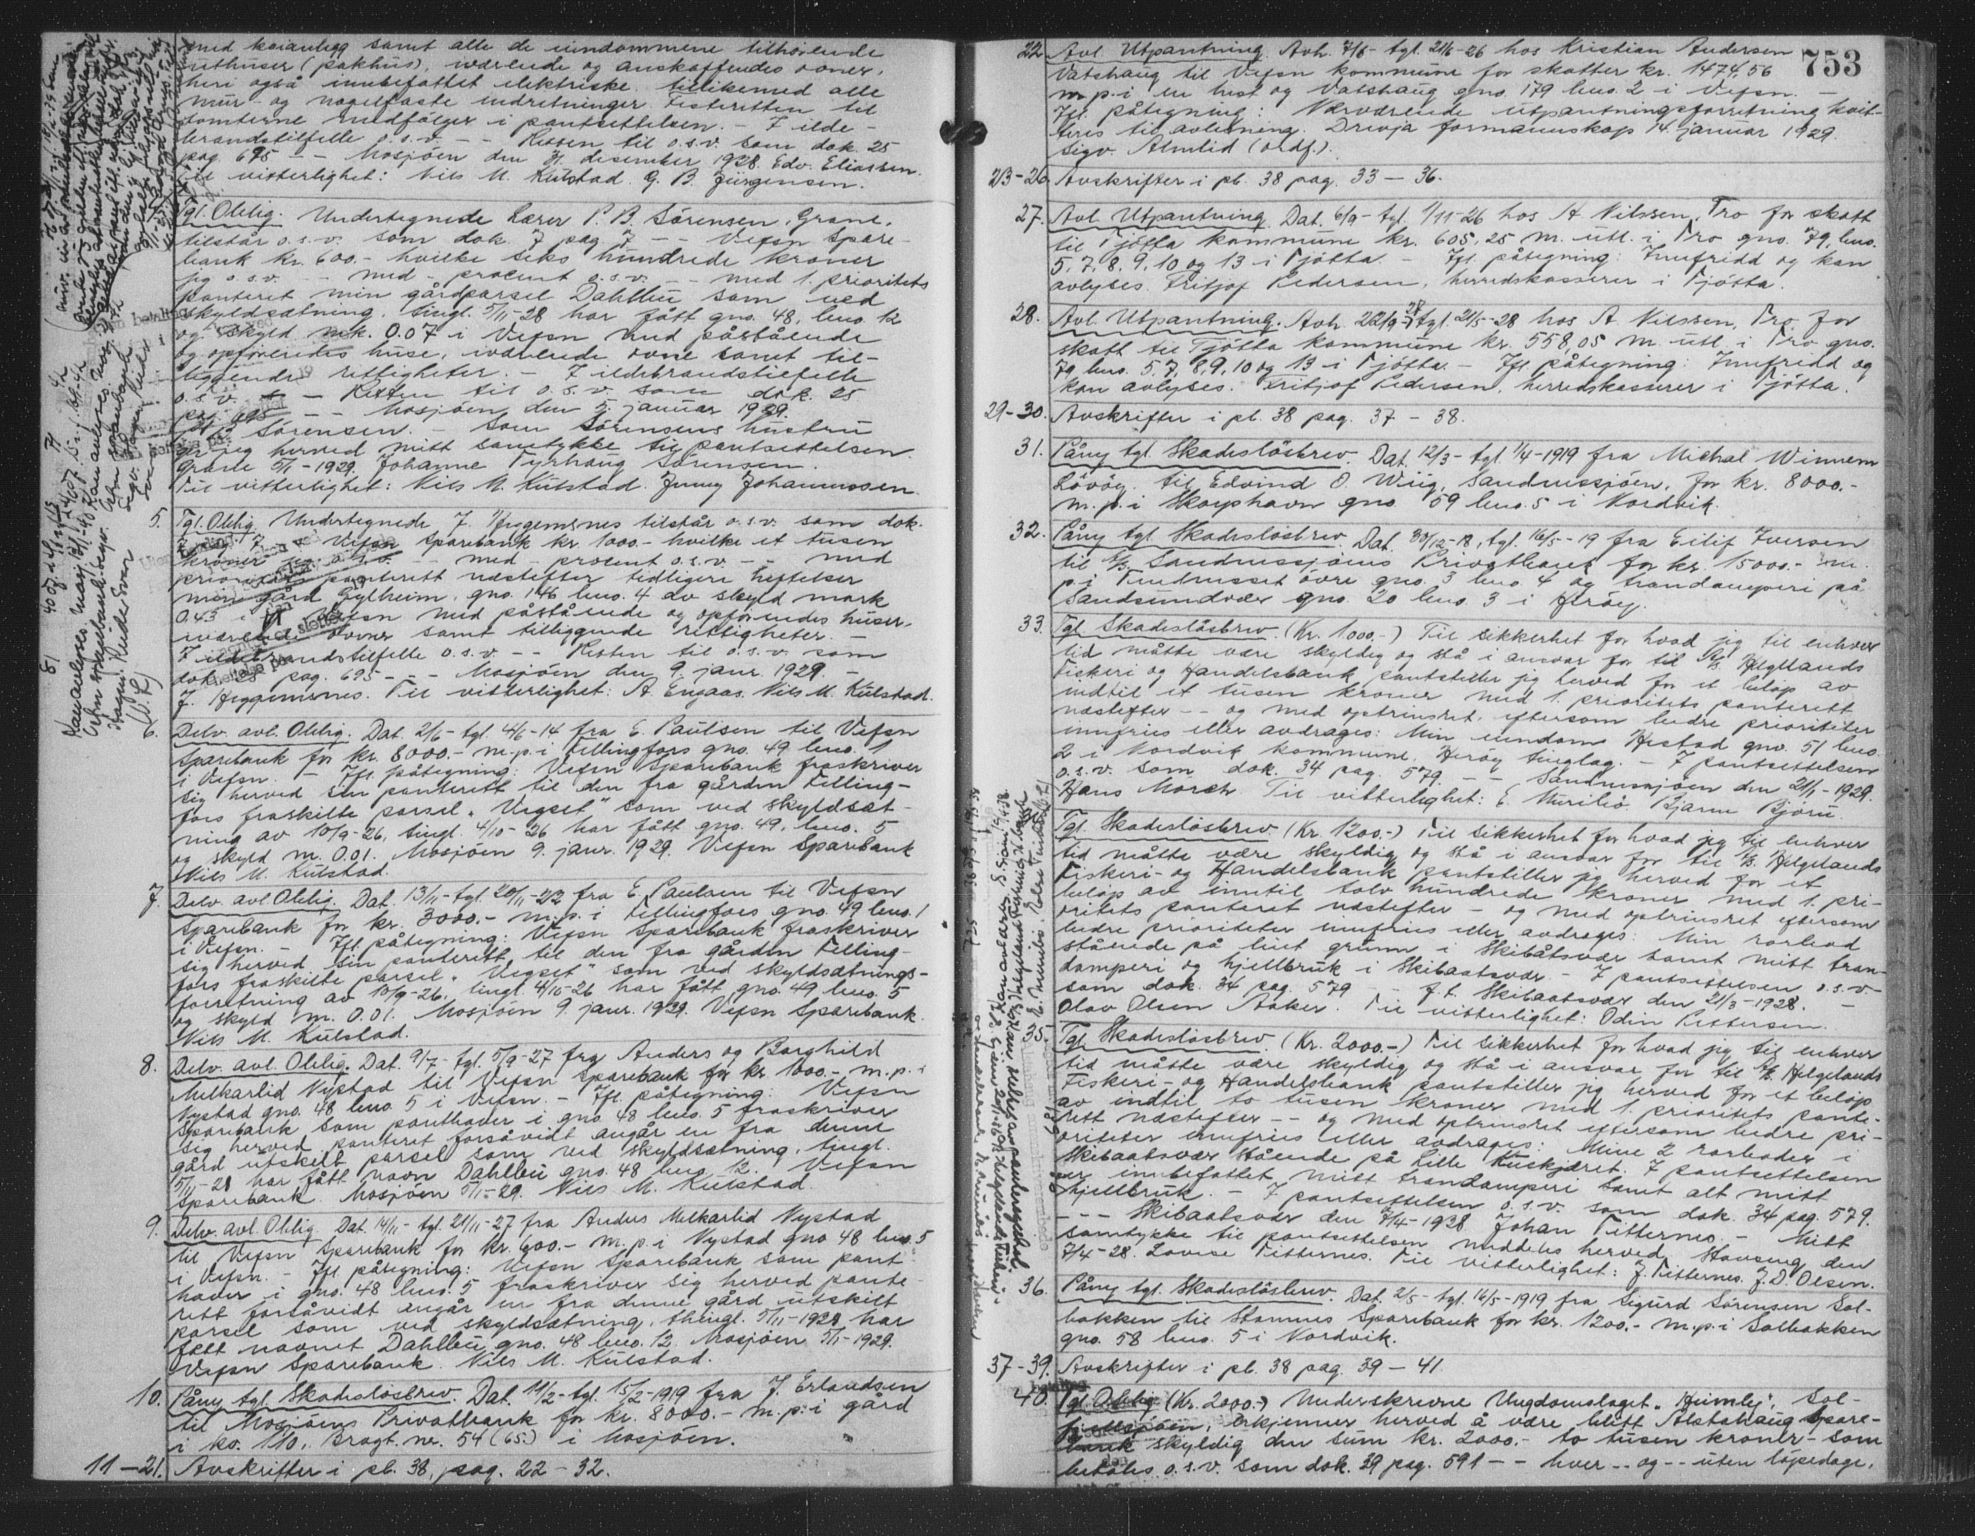 med kaianlegg samt alle de eiendommene tilhørende
uthuser (pakhus), iværende og anskaffendes ovner,
heri også innbefattet elektriske tillikemed alle
mur- og nagelfaste indretninger. Festeretten til
tomterne medfølger i pantsettelsen. - I ilde-
brandstilfelle o.s.v. - - Retten til o.s.v. som dok. 25
pag. 695 - - Mosjøen den 31. desember 1928. Edv. Eliassen.
Til vitterlighet: Nils M. Kulstad. G. B. Jürgensen.
Tgl. Oblig. Undertegnede Lærer P. B. Sørensen, Grane,
tilstår o.s.v. som dok. 7 pag. 7 - - Vefsn Spare-
bank kr. 600.- hvilke seks hundrede kroner
jeg o.s.v. - - med - procent o.s.v. - - med 1. prioritets
panteret min gårdparsel Dahlbu som ved
skyldsætning, tingl. 5/11-28 har fått gno. 48, bno. 12
og skyld mk. 0.07 i Vefsn med påstående
og opførendes huse, iværende ovne samt til-
liggende rettigheter. - I ildebrandstilfelle
o.s.v. - - Retten til o.s.v. som dok. 25
pag. 695 - - Mosjøen, den 5. januar 1929.
P. B. Sørensen. - Som Sørensens hustru
gir jeg herved mitt samtykke til pantsettelsen.
Grane 5/1-1929. Johanne Fyrhaug Sørensen.
Til vitterlighet: Nils M. Kulstad. Jenny Johannessen.
5. Tgl. Oblig. Undertegnede J. Heggemsnes tilstår o.s.v. som dok.
7 pag. 7 - Vefsn Sparebank kr. 1000.- hvilke et tusen
kroner jeg o.s.v. - - med - procent o.s.v. - - med
prioritets panterett næstefter tidligere heftelser
min gård Gylheim, gno. 146 bno. 4 av skyld mark
0.43 i Vefsn med påstående og opførendes huser,
iværende ovner samt tilliggende rettigheter. -
I ildebrandstilfelle o.s.v. - - Retten til o.s.v. som
dok. pag. 695 - - Mosjøen den 9. janr. 1929. -
J. Heggemsnes. Til vitterlighet: A. Engaas. Nils M. Kulstad.
6. Delv. avl. Oblig. Dat. 2/6- tgl. 4/6-14 fra E. Paulsen til Vefsn
Sparebank for kr. 8000.- m.p. i Fellingfors gno. 49 bno. 1
i Vefsn. - Ifl. påtegning: Vefsn Sparebank fraskriver
sig herved sin panterett til den fra gården Felling-
fors fraskilte parsel „Vegset" som ved skyldsæt-
ning av 10/9-26, tingl. 4/10-26 har fått gno. 49, bno. 5
og skyld m. 0.01. Mosjøen 9. janr. 1929. Vefsn Sparebank
Nils M. Kulstad.
7. Delv. avl Oblig. Dat. 13/11- tgl. 20/11-22 fra E. Paulsen til Vefsn
Sparebank for kr. 3000.- m.p. i Fellingfors gno. 49 bno. 1
i Vefsn. - Ifl. påtegning: Vefsn Sparebank fraskriver
sig herved sin panterett til den fra gården Felling-
fors fraskilte parsel „Vegset" som ved skyldsætnings-
forretning av 10/9-26, tingl. 4/10-26 har fått gno. 49 bno. 5
og skyld m. 0.01. Mosjøen 9. janr. 1929. Vefsn Sparebank.
Nils M. Kulstad.
8. Delv. avl. Oblig. Dat. 9/7- tgl. 5/9-27 fra Anders og Borghild
Melkarlid Nystad til Vefsn Sparebank for kr. 1000.- m.p. i
Nystad gno. 48 bno. 5 i Vefsn. - Ifl. påtegning: Vefsn
Sparebank som panthaver i gno. 48 bno. 5 fraskriver
sig herved panteret forsåvidt angår en fra denne
gård utskilt parsel som ved skyldsætning, tingl.
5/11-28 har fått navn Dahlbu gno. 48 bno. 12. Vefsn
Sparebank. Mosjøen 5/1-29. Nils M. Kulstad.
9. Delv. avl. Oblig. Dat 14/11- tgl. 21/11-27 fra Anders Melkarlid Nystad
til Vefsn Sparebank for kr. 600.- m.p. i Nystad gno 48 bno. 5
i Vefsn. - Ifl. påtegning: Vefsn Sparebank som pant-
haver i gno. 48 bno. 5 fraskriver sig herved pante-
rett forsåvidt angår en fra denne gård utskilt
parsel som ved skyldsætning, thingl. 5/11-1928 har
fått navnet Dahlbu gno. 48 bno. 12. Mosjøen 5/1-1929.
Vefsn Sparebank. Nils M. Kulstad.
10. Påny tgl. Skadesløsbrev. Dat. 11/2- tgl. 15/2-1919 fra J. Erlandsen
til Mosjøens Privatbank for kr. 8000.- m.p. i gård
i kv. 110, Bragt. nr. 54 (65) i Mosjøen.
11-21. Avskrifter i pb. 38, pag. 22-32.
753
22. Avl. Utpantning Avh. 7/6- tgl. 21/6-26 hos Kristian Andersen
Vatshaug til Vefsn kommune for skatter kr. 1474.56
m.p. i en hest og Vatshaug gno. 179 bno. 2 i Vefsn. -
Ifl. påtegning: Nærværende utpantningsforretning kvit-
teres til avlesning. Drevja formannskap 14. januar 1929.
Sigv. Almlid (oldf.).
23-26. Avskrifter i pb. 38 pag. 33-36.
27. Avl. Utpantning. Dat. 6/9- tgl. 1/11-26 hos A. Nilssen, Tro for skatt
til Tjøtta kommune kr. 605,25 m. utl. i Tro gno. 79, bno.
5. 7. 8. 9. 10 og 13 i Tjøtta. - Ifl. påtegning: Innfridd og kan
avlyses. Fritjof Pedersen, herredskasserer i Tjøtta.
28. Avl. Utpantning. Avh. 22/9- 27 tgl. 21/5-28 hos A. Nilssen, Tro for
skatt til Tjøtta kommune kr. 558,05 m. utl. i Tro gno.
79 bno. 5. 7. 8. 9. 10 og 13 i Tjøtta. - Ifl. påtegning: Innfridd og
kan avlyses. Fritjof Pedersen, herredskasserer i Tjøtta.
29-30. Avskrifter i pb. 38 pag. 37-38.
31. Påny tgl. Skadesløsbrev. Dat. 12/3- tgl. 1/4-1919 fra Michal Winnem
Løvøy til Edvind O. Wiig, Sandnessjøen, for kr. 8000.-
m.p. i Skorphavn gno. 59 bno. 5 i Nordvik.
32. Påny tgl. Skadesløsbrev. Dat. 30/12-18, tgl. 16/5-19 fra Eilif Iversen
til A/S Sandnessjøens Privatbank for kr. 15000.- m.
p. i Tendnesset øvre gno. 3 bno. 4 og trandamperi på
Sandsundvær gno. 20 bno. 3 i Herøy.
33. Tgl. Skadesløsbrev. (Kr. 1000.-) Til sikkerhet for hvad jeg til enhver
tid måtte være skyldig og stå i ansvar for til A/S Helgelands
Fiskeri og Handelsbank pantstiller jeg herved for et beløp av
indtil et tusen kroner med 1. prioritets panterett
næstefter - - og med optrinsret, eftersom bedre prioriteter
innfries eller avdrages: Min eiendom Hestad gno. 51 bno.
2 i Nordvik kommune, Herøy tinglag. - I pantsettelsen
o.s.v. som dok. 34 pag. 579 - - Sandnessjøen den 21/1-1929.
Hans Morch. Til vitterlighet: E. Meiriliø. Bjarne Bjøru.
Tgl. Skadesløsbrev (Kr. 1200.-) Til sikkerhet for hvad jeg til enhver
tid måtte være skyldig og stå i ansvar for til A/S Helgelands
Fiskeri- og Handelsbank pantstiller jeg herved for et
beløp av inntil tolv hundrede kroner med 1. pri-
oritets panteret næstefter - og med optrinsret eftersom
bedre prioriteter innfries eller avdrages: Min rorbod
stående på leiet grunn i Skibåtsvær samt mitt tran-
damperi og hjellbruk i Skibaatsvær. - I pantsettelsen o.s.v.
som dok. 34 pag. 579 - - f.t. Skibaatsvær den 21/3-1928. -
Olav Olsen Aaker. Til vitterlighet: Odin Pettersen.
35. Tgl. Skadesløsbrev (Kr. 2000.-) Til sikkerhet for hvad jeg til enhver
tid måtte være skyldig og stå i ansvar for til A/S Helgelands
Fiskeri- og Handelsbank pantstiller jeg herved for et beløp
av indtil to tusen kroner med 1. prioritets pante-
rett næstefter - - og med optrinsret eftersom bedre pri-
oriteter innfries eller avdrages: Mine 2 rorboder i
Skibaatsvær stående på Lille Kuskjæret. I pantsettelsen
er innbefattet mitt trandamperi samt alt mitt
hjellbruk. - I pantsettelsen o.s.v. som dok. 34 pag. 579.
- - - Skibaatsvær den 7/4-1928. Johan Titternes. - Mitt
samtykke til pantsettelsen meddeles herved. Stavseng den
7/4-28. Lovise Titternes. Til vitterlighet: J. Titternes. J. D. Olsen.
36. Påny tgl. Skadesløsbrev. Dat. 2/5- tgl. 16/5-1919 fra Sigurd Sørensen Sol-
bakken til Stamnes Sparebank for kr. 1200.- m.p. i Solbakken
gno. 58 bno. 5 i Nordvik.
37-39. Avskrifter i pb. 38 pag. 39-41.
40. Tgl. Oblig. (Kr. 2000.-) Underskrevne Ungdomslaget „Heimly", Sol-
erkjenner herved å være blitt Alstahaug Spare-
bank skyldig den sum kr. 2000.- to tusen kroner - som
betales o.s.v. som dok. 39 pag. 591 - - hver - - og - - uten løpedage,